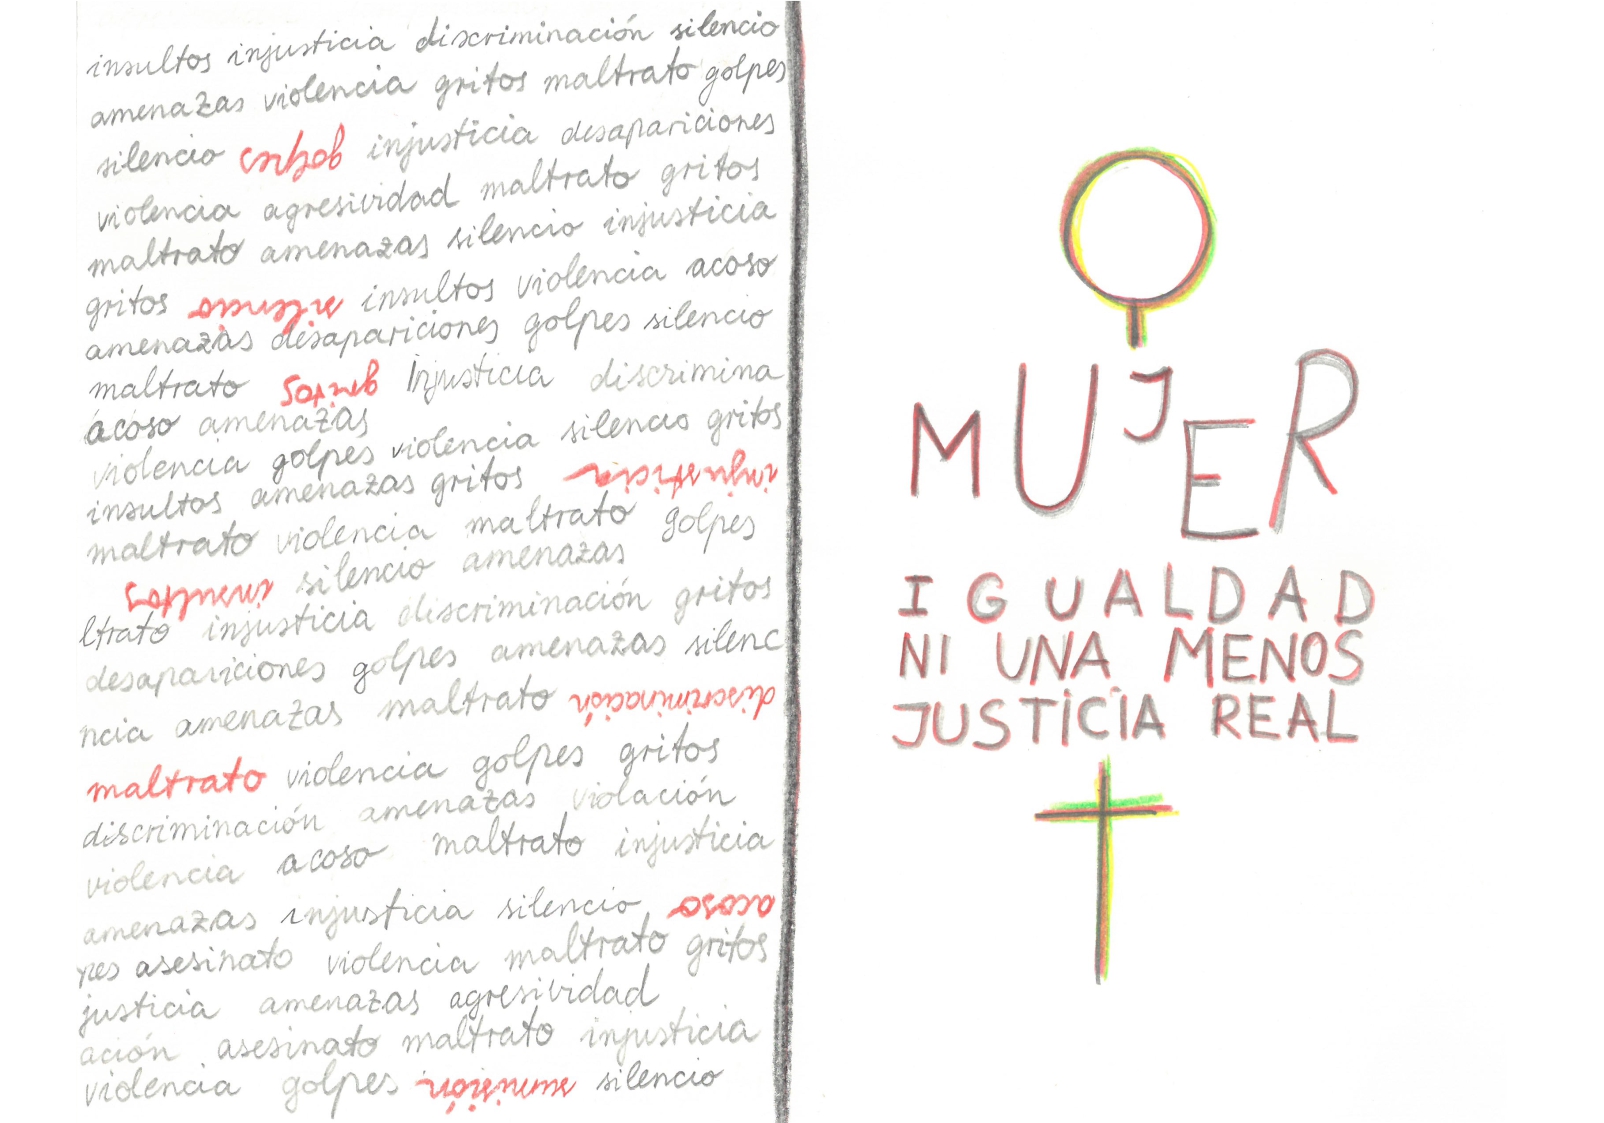 insultos injusticia discriminación silencio
amenazas violencia gritos maltrato golpes
silencio golpes injusticia desapariciones
violencia agresividad maltrato gritos
maltrato amenazas silencio injusticia
gritos insultos violencia acoso
amenazas desapariciones golpes silencio
maltrato gritos Injusticia discrimina
acoso amenazas
violencia golpes violencia silencio gritos
insultos amenazas gritos injusticia
maltrato violencia maltrato golpes
insultos silencio amenazas
ltrato injusticia discriminación gritos
desapariciones golpes amenazas silenc
ncia amenazas maltrato discriminación
maltrato violencia golpes gritos
discriminación amenazas violación
violencia acoso maltrato injusticia
amenazas injusticia silencio acoso
pes asesinato violencia maltrato gritos
justicia amenazas agresividad
ación asesinato maltrato injusticia
violencia golpes sumisión silencio
MUJER
IGUALDAD
NI UNA MENOS
JUSTICIA REAL